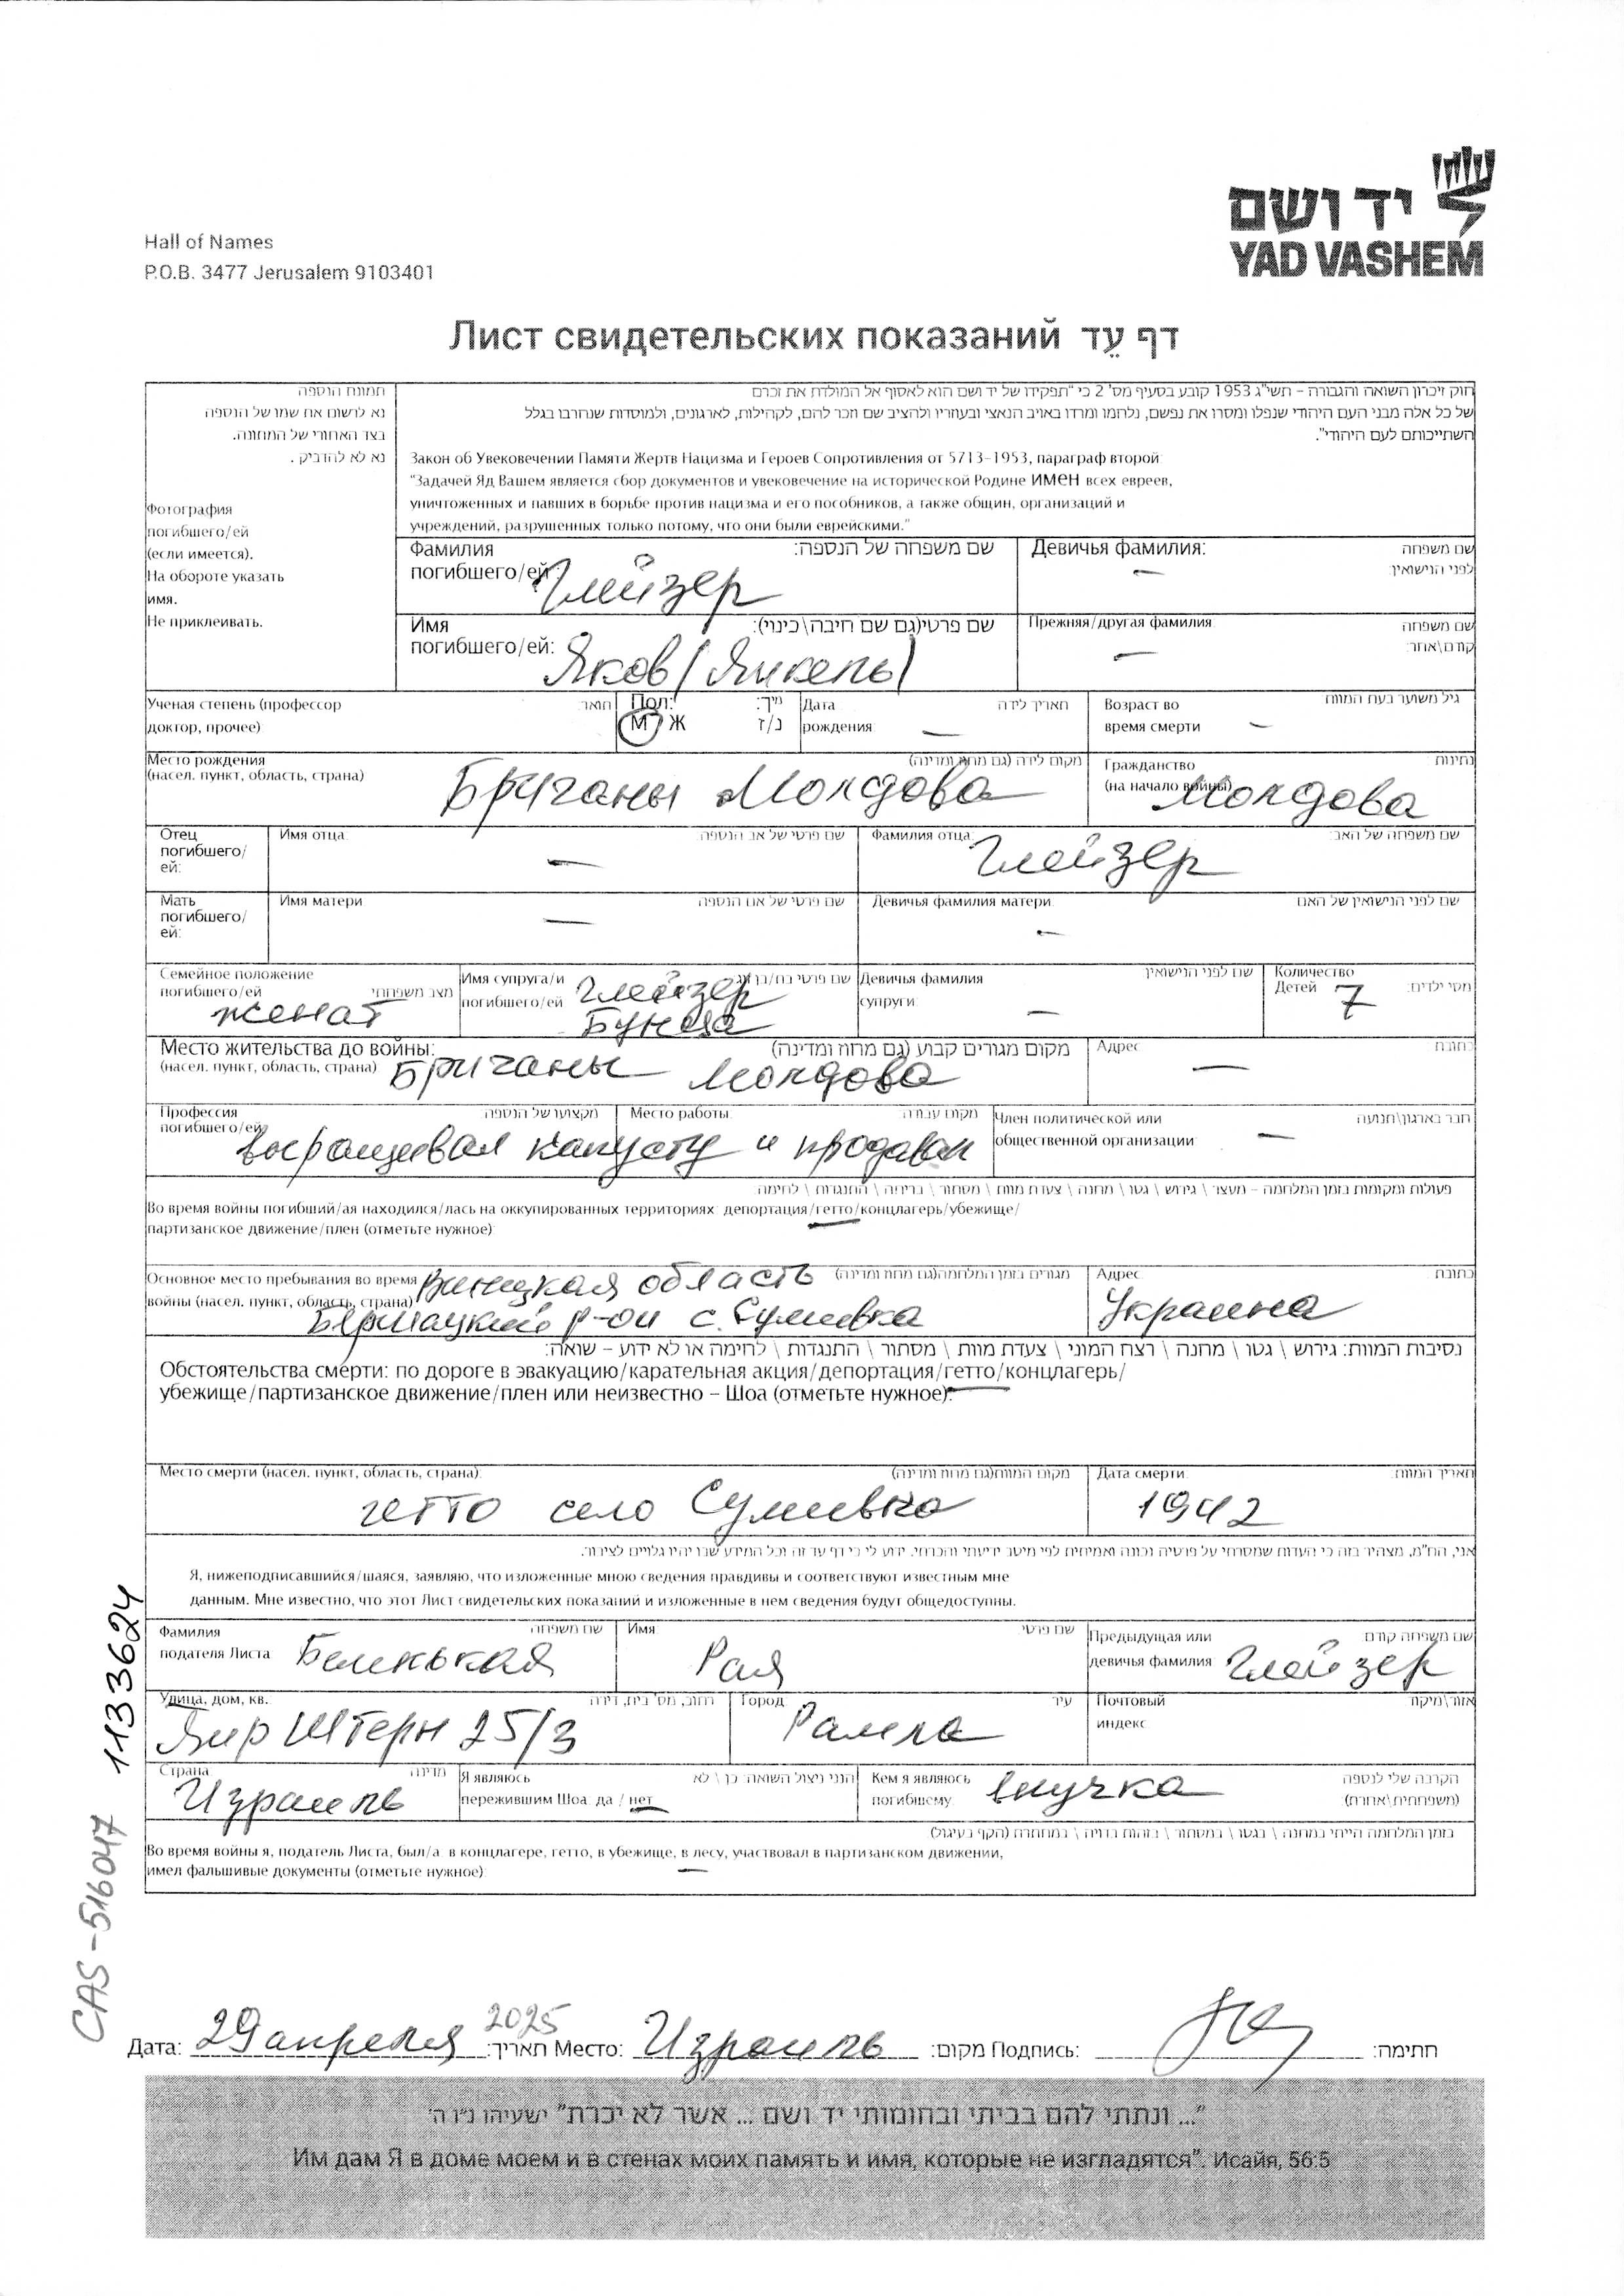 יד ושם
YAD VASHEM
Hall of Names
P.O.B. 3477 Jerusalem 9103401
Лист свидетельских показаний דף עֵד
תמונת הנספה
נא לרשום את שמו של הנספה
בצד האחורי של התמונה.
נא לא להדביק .
Фотография
погибшего/ей
(если имеется).
На обороте указать
имя.
Не приклеивать.
חוק זיכרון השואה והגבורה – תשי"ג 1953 קובע בסעיף מס' 2 כי "תפקידו של יד ושם הוא לאסוף אל המולדת את זכרם
של כל אלה מבני העם היהודי שנפלו ומסרו את נפשם, נלחמו ומרדו באויב הנאצי ובעוזריו ולהציב שם וזכר להם, לקהילות, לארגונים, ולמוסדות שנחרבו בגלל
השתייכותם לעם היהודי".
Закон об Увековечении Памяти Жертв Нацизма и Героев Сопротивления от 5713–1953, параграф второй:
"Задачей Яд Вашем является сбор документов и увековечение на исторической Родине ИМЕН всех евреев,
уничтоженных и павших в борьбе против нацизма и его пособников, а также общин, организаций и
учреждений, разрушенных только потому, что они были еврейскими."
Фамилия погибшего/ей: Глейзер שם משפחה של הנספה:
Девичья фамилия: — שם משפחה לפני הנישואין:
Имя погибшего/ей: Яков (Янкель) שם פרטי(גם שם חיבה\כינוי):
Прежняя/другая фамилия: — שם משפחה קודם\אחר:
Ученая степень (профессор доктор, прочее) תואר:
Пол: М Ж מין: ז/נ
Дата рождения: — תאריך לידה
Возраст во время смерти — גיל משוער בעת המוות
Место рождения (насел. пункт, область, страна) Бричаны Молдова מקום לידה (גם מחוז ומדינה)
Гражданство (на начало войны) Молдова נתינות
Отец погибшего/ей: Имя отца: — שם פרטי של אב הנספה
Фамилия отца: Глейзер שם משפחה של האב:
Мать погибшего/ей: Имя матери — שם פרטי של אם הנספה
Девичья фамилия матери: — שם לפני הנישואין של האם
Семейное положение погибшего/ей женат מצב משפחתי
Имя супруга/и погибшего/ей Глейзер שם פרטי בת/בן זוג
Девичья фамилия супруги: — שם לפני הנישואין
Количество Детей 7 מס' ילדים:
Место жительства до войны: (насел. пункт, область, страна) Бричаны Молдова מקום מגורים קבוע (גם מחוז ומדינה)
Адрес — כתובת
Профессия погибшего/ей מקצועו של הנספה Место работы: מקום עבודה
выращивал капусту и продавал
Член политической или общественной организации: — חבר בארגון\תנועה
פעולות ומקומות בזמן המלחמה – מעצר \ גירוש \ גטו \ מחנה \ צעדת מוות \ מסתור \ בריחה \ התנגדות \ לחימה:
Во время войны погибший/ая находился/лась на оккупированных территориях: депортация/гетто/концлагерь/убежище/
партизанское движение/плен (отметьте нужное)
Основное место пребывания во время войны (насел. пункт, область, страна) מגורים בזמן המלחמה(גם מחוז ומדינה)
Виницкая область
р-он с. Сумивка
Адрес Украина כתובת
נסיבות המוות: גירוש \ גטו \ מחנה \ רצח המוני \ צעדת מוות \ מסתור \ התנגדות \ לחימה או לא ידוע – שואה:
Обстоятельства смерти: по дороге в эвакуацию/карательная акция/депортация/гетто/концлагерь/
убежище/партизанское движение/плен или неизвестно – Шоа (отметьте нужное):
Место смерти (насел. пункт, область, страна): מקום המוות(גם מחוז ומדינה)
гетто село Сумивка
Дата смерти: 1942 תאריך המוות:
אני, הח"מ, מצהיר בזה כי העדות שמסרתי על פרטיה נכונה ואמיתית לפי מיטב ידיעתי והכרתי. ידוע לי כי דף עד זה וכל המידע שבו יהיו גלויים לציבור.
Я, нижеподписавшийся/шаяся, заявляю, что изложенные мною сведения правдивы и соответствуют известным мне
данным. Мне известно, что этот Лист свидетельских показаний и изложенные в нем сведения будут общедоступны.
Фамилия подателя Листа Белиькая שם משפחה
Имя: Рая שם פרטי
Предыдущая или девичья фамилия Глейзер שם משפחה קודם
Улица, дом, кв. Яир Штерн 25/3 רחוב, מס' בית, דירה
Город: Рамла עיר
Почтовый индекс: אזור\מיקוד
Страна: Израиль מדינה
Я являюсь пережившим Шоа: да / нет הנני ניצול השואה: כן \ לא
Кем я являюсь погибшему: внучка הקרבה שלי לנספה (משפחתית\אחרת)
בזמן המלחמה הייתי במחנה \ בגטו \ במסתור \ בזהות בדויה \ במחתרת (הקף בעיגול)
Во время войны я, податель Листа, был/а: в концлагере, гетто, в убежище, в лесу, участвовал в партизанском движении,
имел фальшивые документы (отметьте нужное):
CAS-516047 1133624
Дата: 29 апреля 2025 תאריך: Место: Израиль מקום: Подпись: חתימה:
"... ונתתי להם בביתי ובחומותי יד ושם ... אשר לא יכרת" ישעיהו נ"ו ה'
Им дам Я в доме моем и в стенах моих память и имя, которые не изгладятся". Исайя, 56:5